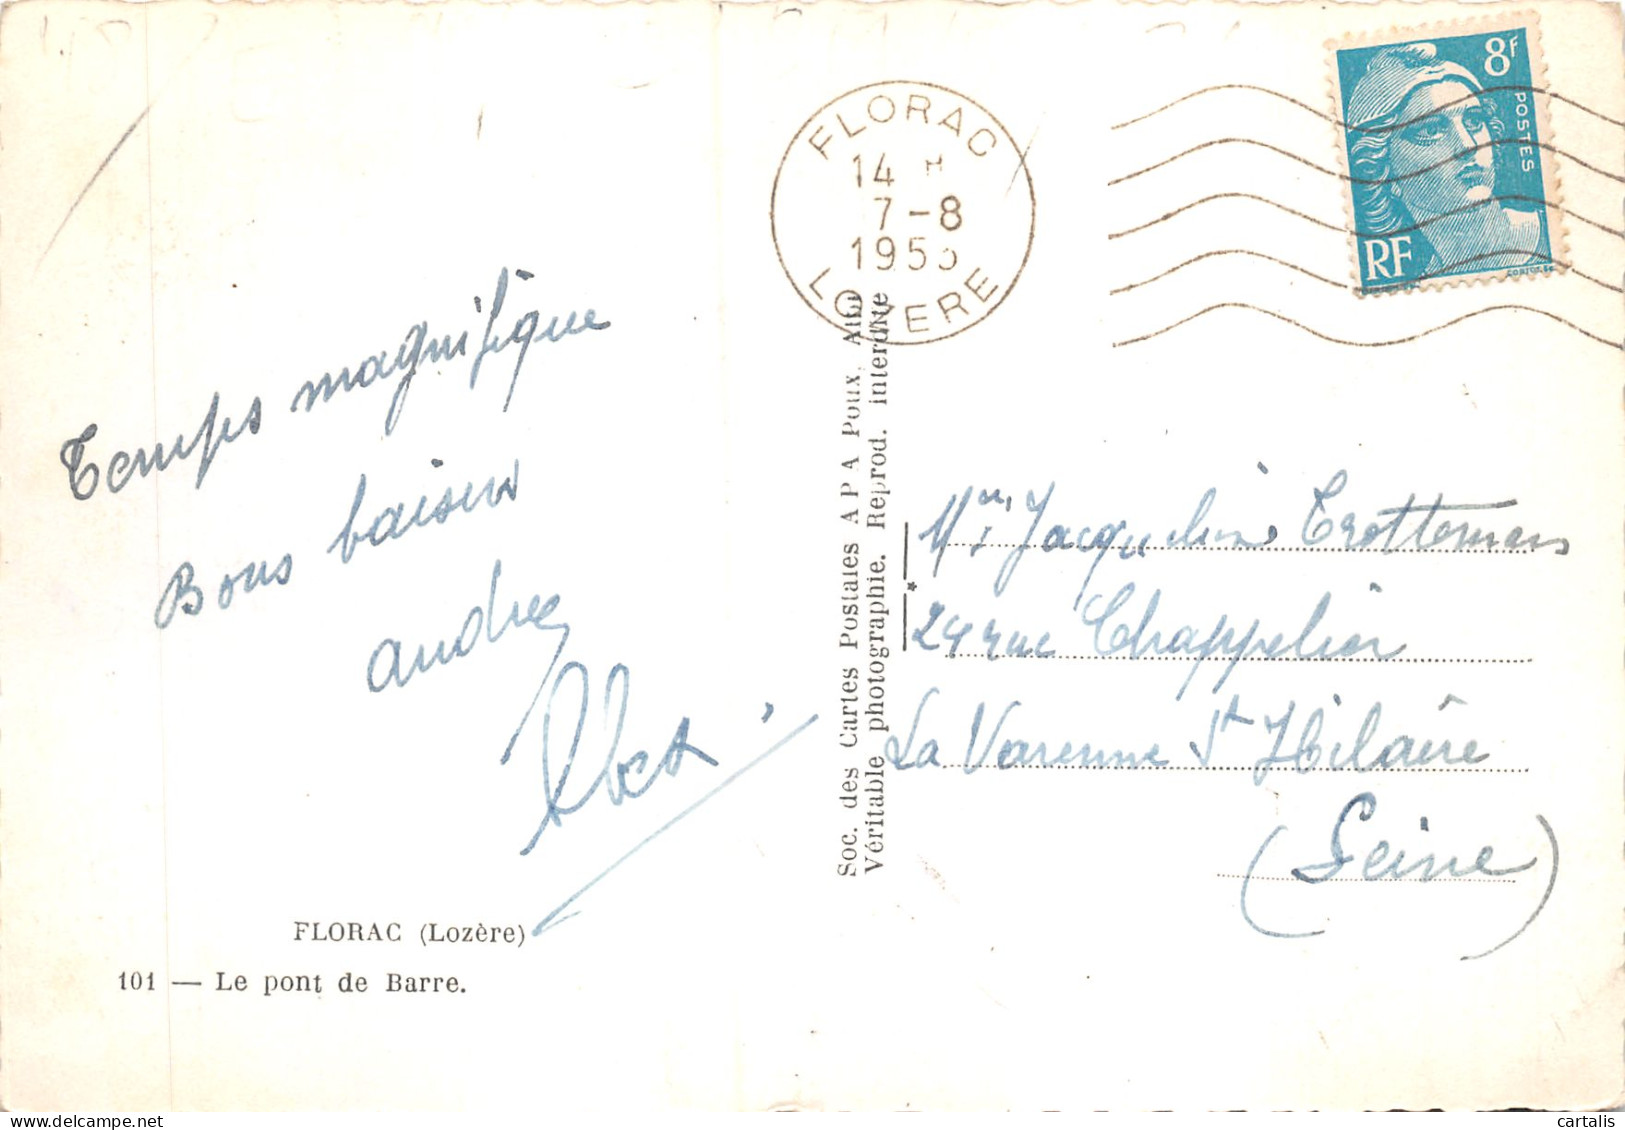 Temps magnifique
Bons baisers
andré
FLORAC (Lozère)
101 — Le pont de Barre.
Soc. des Cartes Postales A P A Poux, Albi
Véritable photographie. Reprod. interdite
FLORAC
14 H
7-8
195
LOZERE
8F
POSTES
RF
Jacqueline
24 rue Chappelier
La Varenne St Hilaire
(Seine)
cartalis | delcampe.net